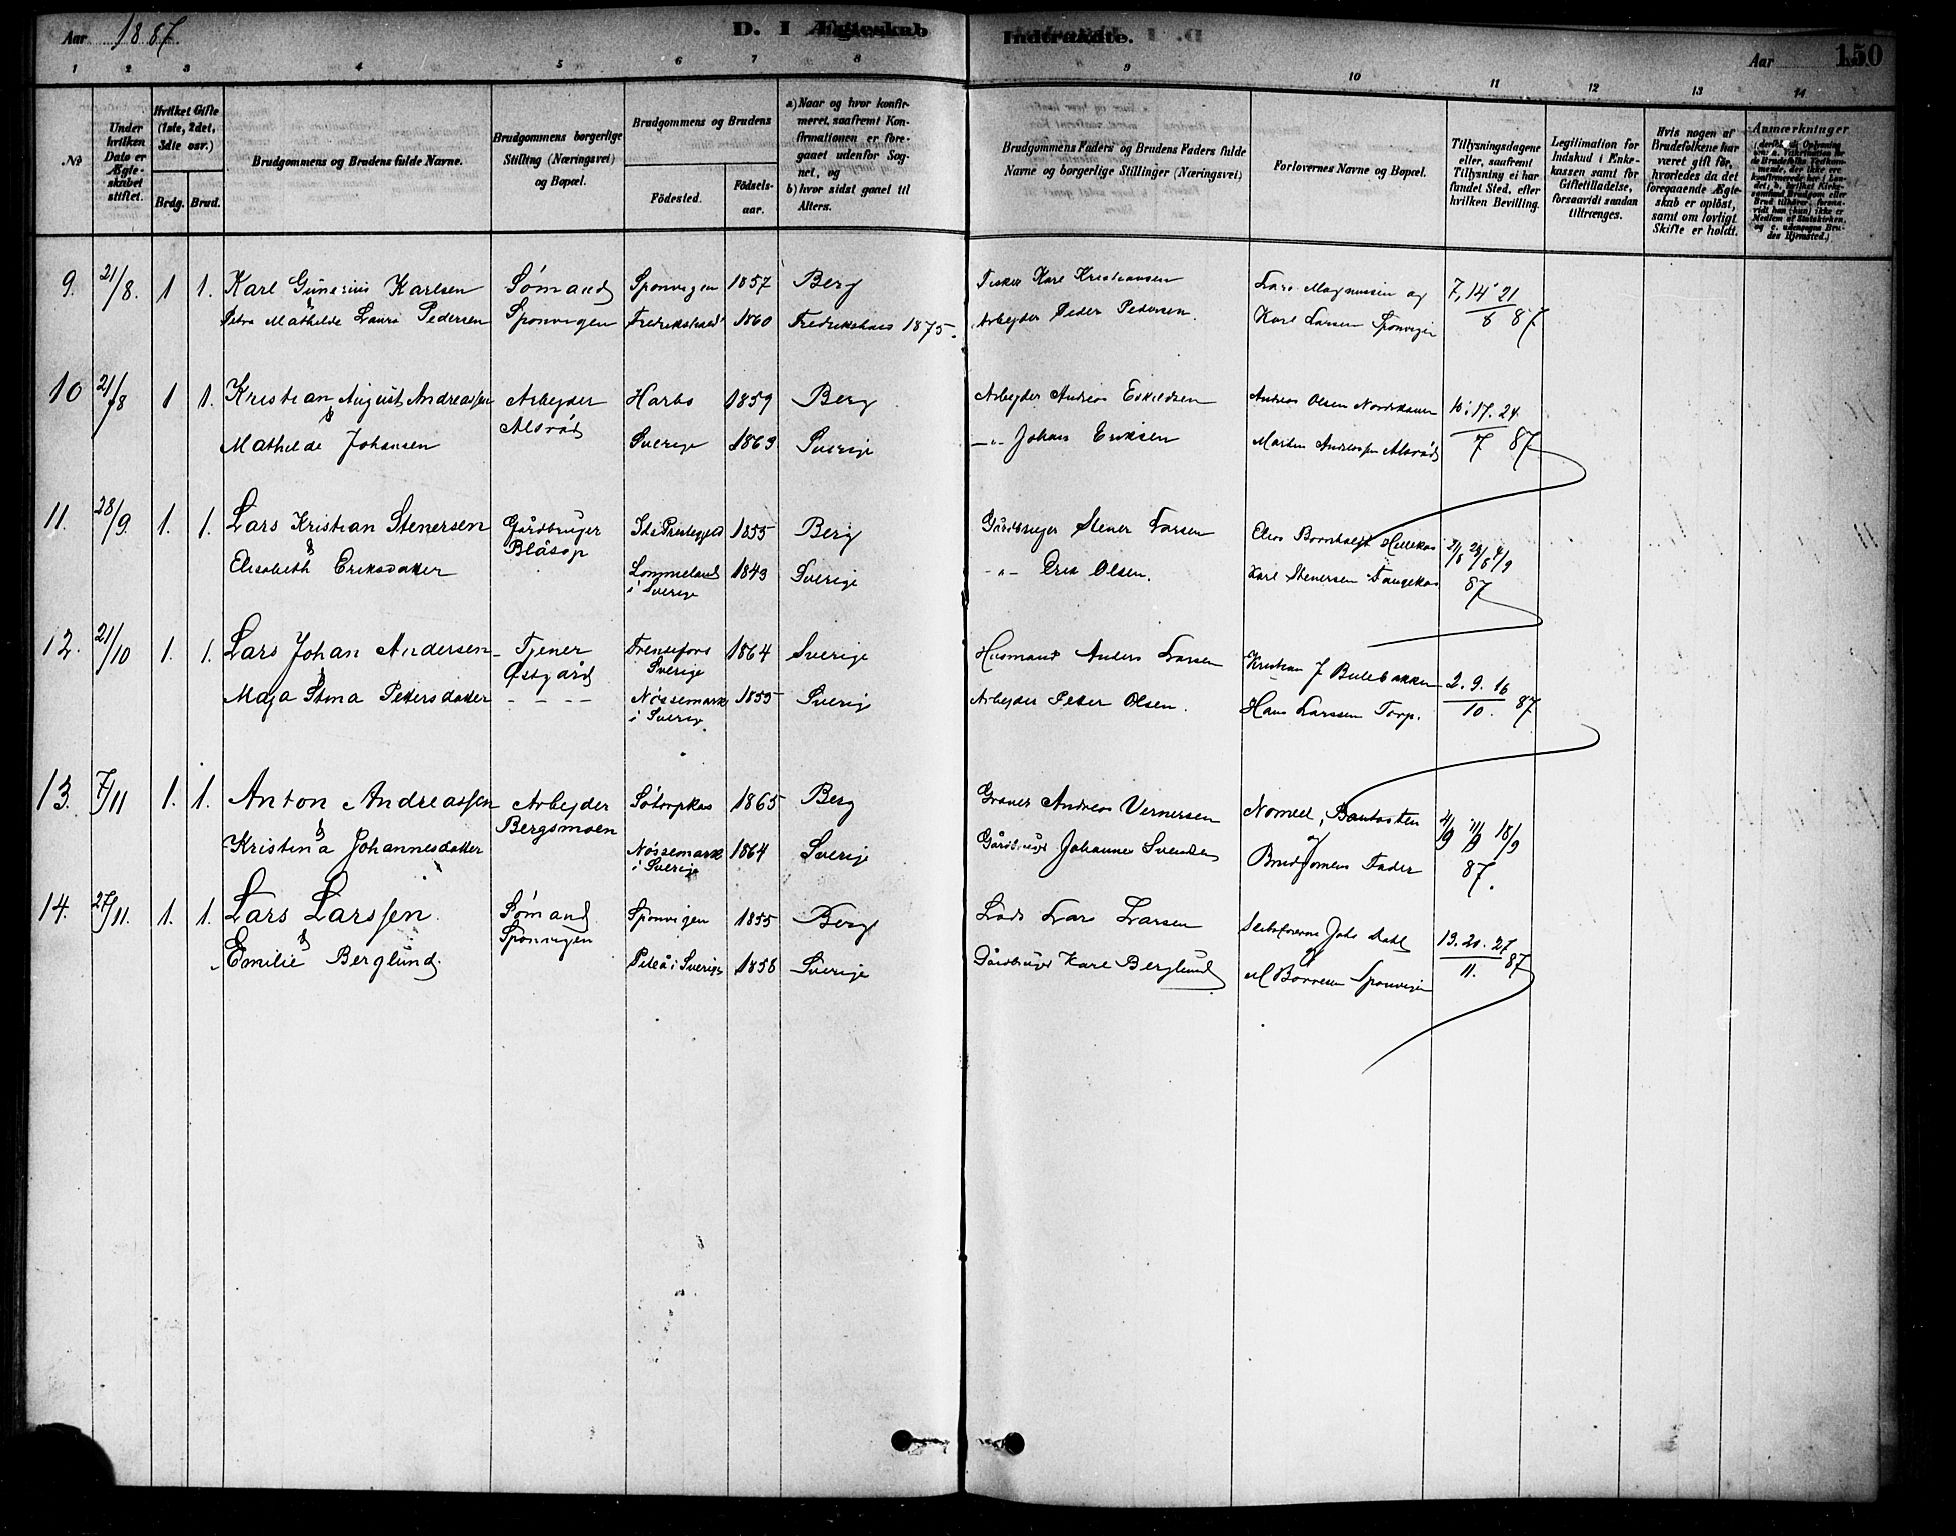 Aar 1887 D. I Ægteskab Indtraadte. Aar 150
1 2 3 4 5 6 7 8 9 10 11 12 13 14
No
Under hvilken Dato er Ægteskabet stiftet.
Hvilket Gifte (1ste, 2det, 3die osv.)
Brdg. Brud.
Brudgommens og Brudens fulde Navne.
Brudgommens borgerlige Stilling (Næringsvei) og Bopæl.
Brudgommens og Brudens
Födested. Födselsaar.
a) Naar og hvor konfirmeret, saafremt Konfirmationen er foregaaet udenfor Sognet, og
b) hvor sidst gaaet til Alters.
Brudgommens Faders og Brudens Faders fulde Navne og borgerlige Stillinger (Næringsvei)
Forlovernes Navne og Bopæl.
Tillysningsdagene eller, saafremt Tillysning ei har fundet Sted, efter hvilken Bevilling.
Legitimation for Indskud i Enkekassen samt for Giftetilladelse, forsaavidt saadan tiltrænges.
Hvis nogen af Brudefolkene har været gift för, hvorledes da det foregaaende Ægteskab er oplöst, samt om lovligt Skifte er holdt.
Anmærkninger
9. 21/8. 1 1. Karl Gunerius Karlsen Sömand Sponvigen 1857 Berg Fisker Karl Kristiansen Lars Magnussen og 7, 14 21
& Petra Mathilde Laura Pedersen Sponvigen Fredrikshald 1860 Fredrikshald 1875. Arbejder Peder Pedersen. Karl Larsen Sponvigen 8 87
10 21/8 1 1. Kristian August Andreassen Arbejder 1859 Berg Arbejder Andreas Eskildsen Andreas Olsen 10. 17. 24.
& Mathilde Johansen Alsröd Sverige 1863 Sverige -"- Johans Eriksen Martin Andreassen Alsröd 7 87
11. 28/9. 1. 1. Lars Kristian Stenersen Gårdbruger 1855 Berg Gårdbruger Stener Larsen
& Elisabeth Eriksdatter Blåsop Lommeland i Sverige 1843 Sverige -"- Erik Olsen. Karl Stenersen 21/8 28/8 4/9 87
12. 21/10 1. 1. Lars Johan Andersen Tjener Sverige 1864 Sverige Husmand Anders Larsen Kristian J
& Maja Stina Petersdatter Östgård Nössemark i Sverig 1855 Sverig Arbejder Peter Olsen. Hans Larssen Torp. 2. 9. 16 10. 87
13. 7/11 1. 1. Anton Andreassen Arbejder 1865 Berg Andreas Vernersen 4/9 11/9 18/9
& Kristina Johannesdatter Bergsmoen Nössemark i Sverige 1864 Sverige Gårdbruger Johannes og Brudgomens Fader 87.
14. 27/11. 1. 1. Lars Larssen Sömand Sponvigen 1855 Berg Lods Lars Larsen 13. 20. 27
& Emilie Berglund. Sponvigen Piteå i Sverige 1858 Sverige Gårdbruger Karl Berglund og M Börresen Sponvigen 11. 87